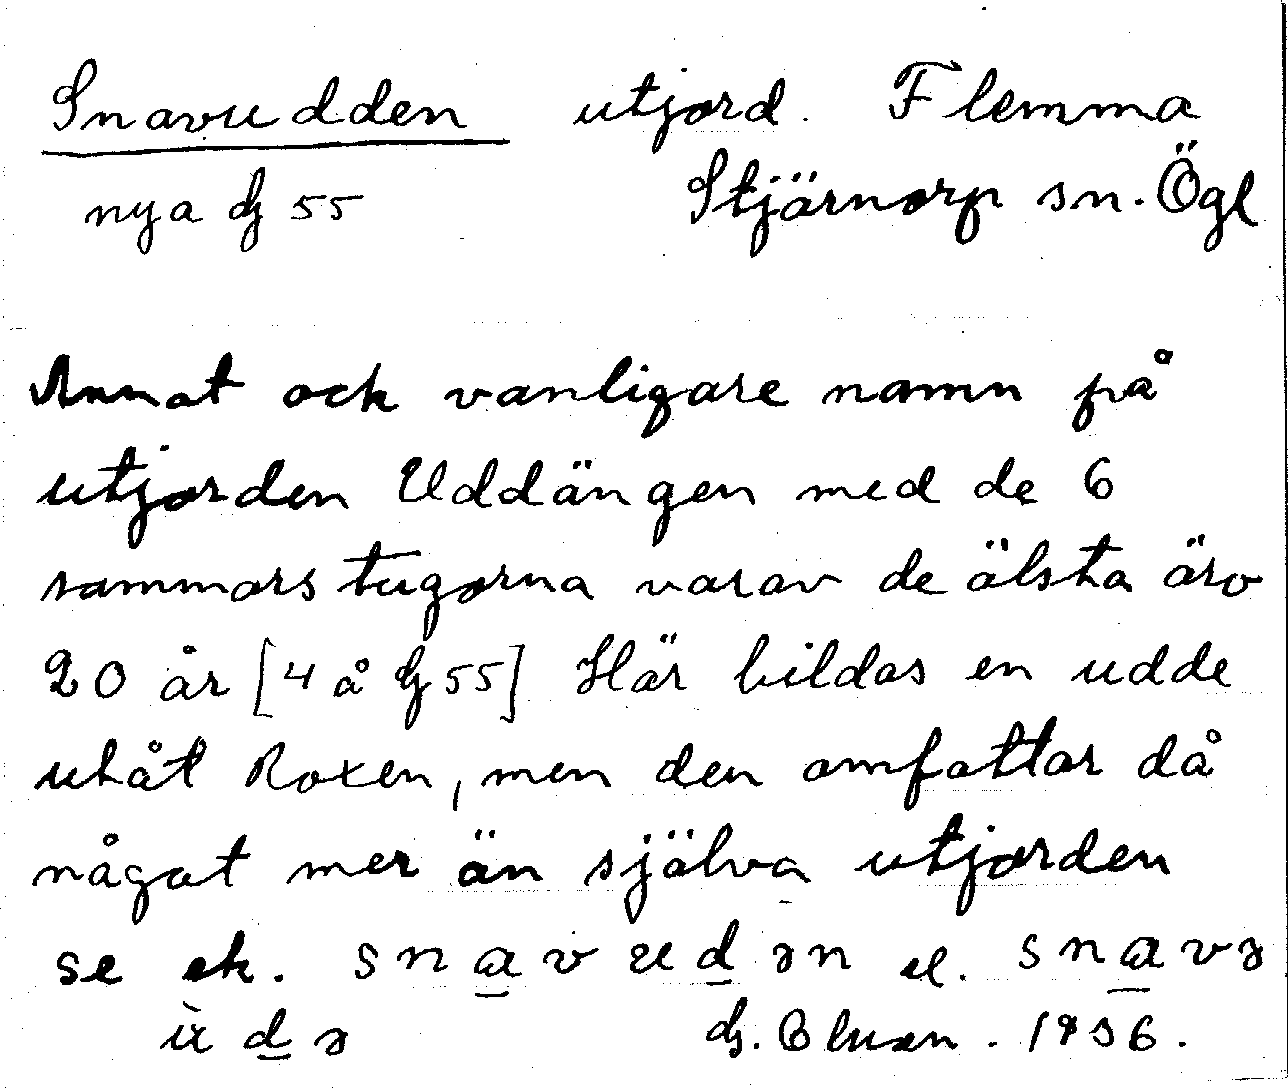 Snavudden utjord. Flemma
nya 55 Stjärnorp sn. Ögl
Annat och vanligare namn på
utjorden Uddängen med de 6
sommarstugorna varav de älsta äro
20 år [4 å 55] Här bildas en udde
utåt Roxen, men den omfattar då
något mer än själva utjorden
se ek. snavudən el. snavə
ùdə 1956.